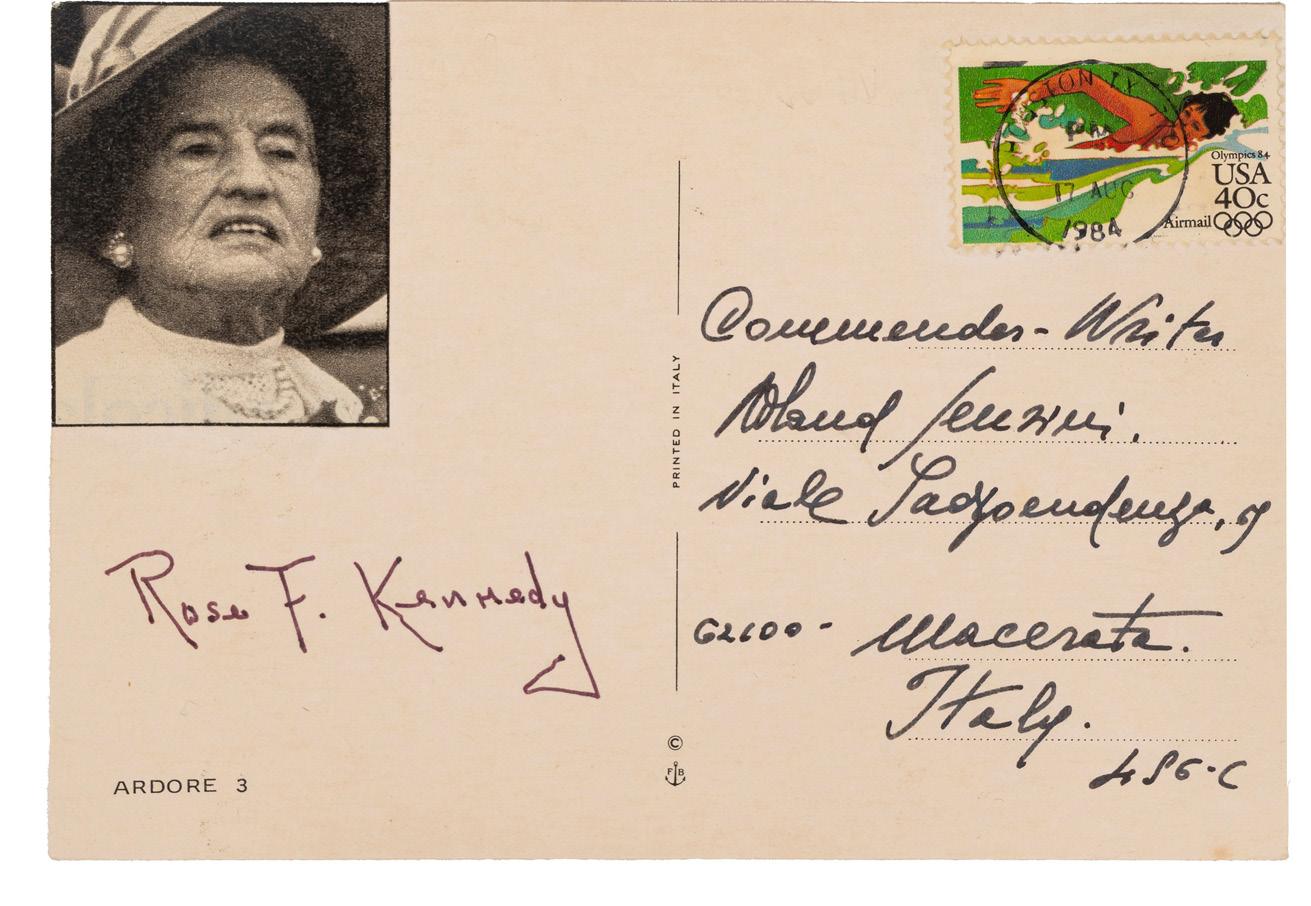 STON TX
PM
17 AUG
1984
Olympics 84
USA
40c
Airmail
Commender - Writer
Roland Jenzini,
Viale Indipendenza,
62100 -
Macerata.
Italy.
486-C
PRINTED IN ITALY
Rose F. Kennedy
ARDORE 3
©
F B